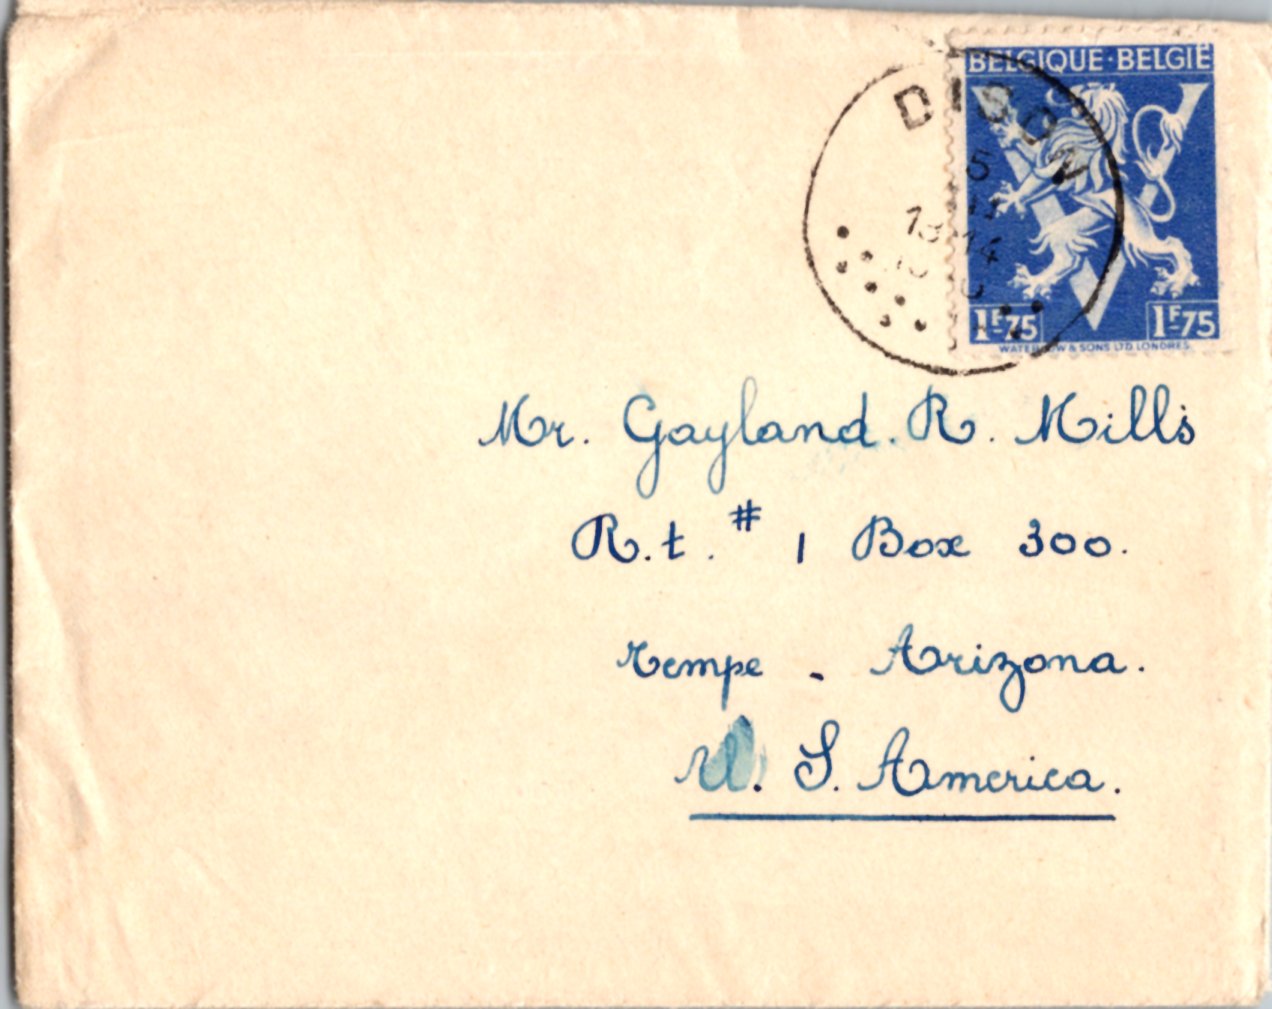 BELGIQUE·BELGIË
DISON
5
13-14
1F75 1F75
WATERLOW & SONS LTD. LONDRES.
Mr. Gayland. R. Mills
R.t. # 1 Box 300.
Tempe - Arizona.
U. S. America.